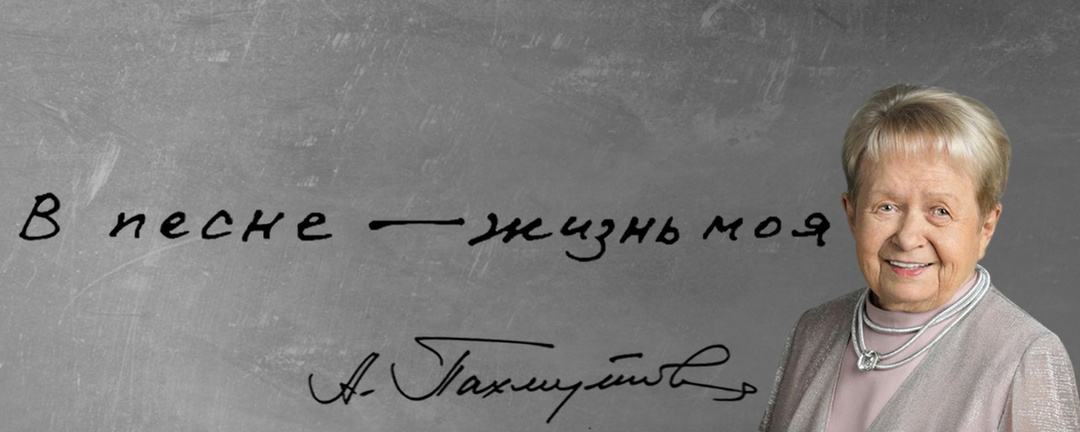 В песне — жизнь моя
А. Пахмутова